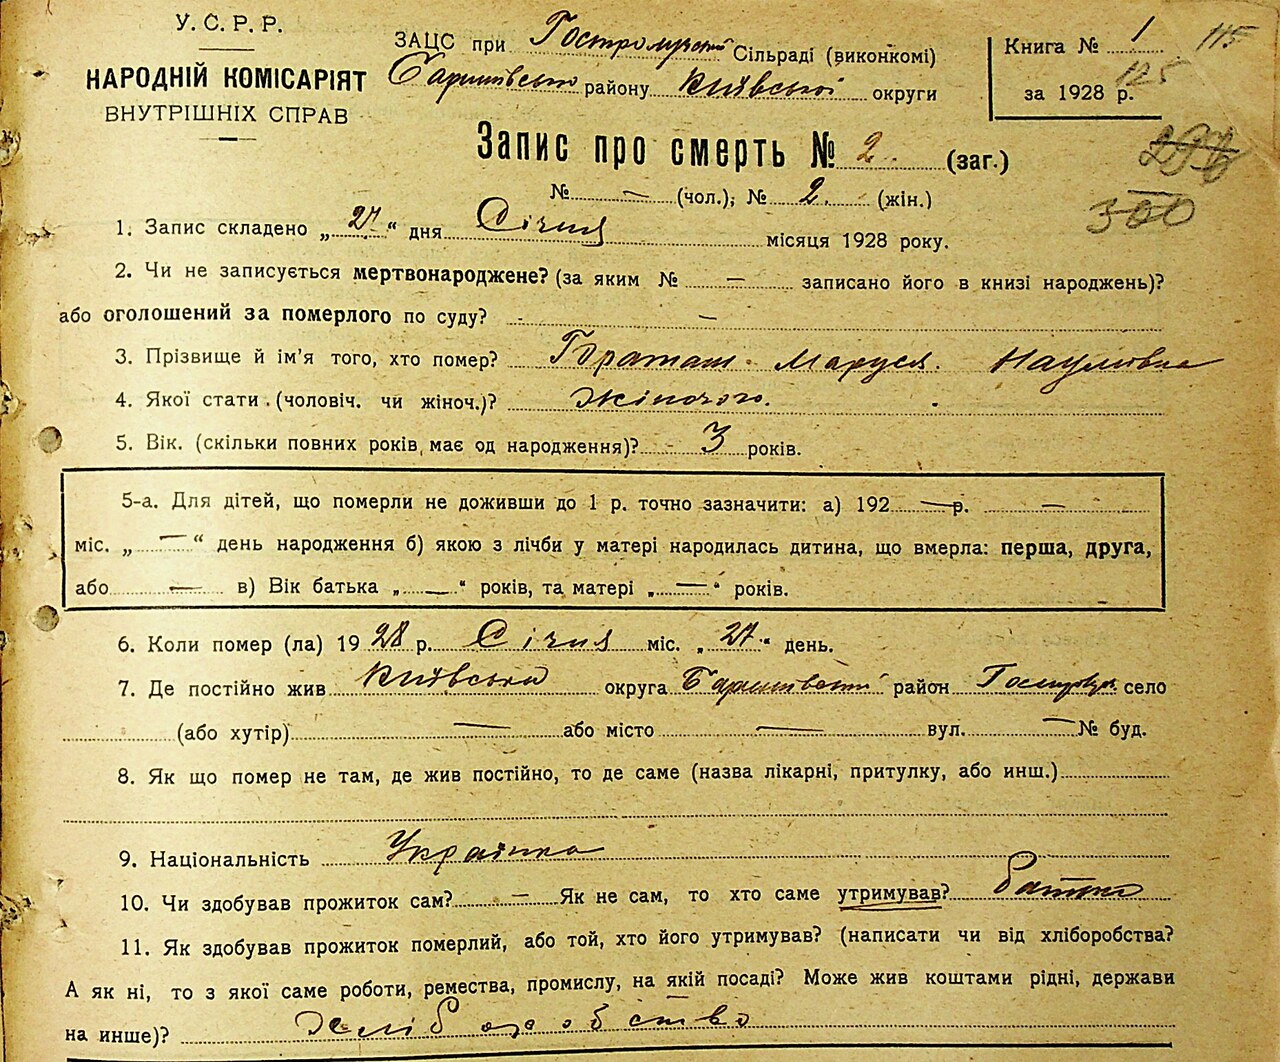 У. С. Р. Р.
НАРОДНІЙ КОМІСАРІЯТ
ВНУТРІШНІХ СПРАВ
ЗАЦС при Гостролуцькій Сільраді (виконкомі)
Баришівського району Київської округи
Книга № 1
за 1928 р.
115
125
296
300
Запис про смерть № 2. (заг.)
№ — (чол.); № 2. (жін.)
1. Запис складено „27“ дня Січня місяця 1928 року.
2. Чи не записується мертвонароджене? (за яким № — записано його в книзі народжень)?
або оголошений за померлого по суду? —
3. Прізвище й ім'я того, хто помер? Браташ Маруся Наумівна
4. Якої стати (чоловіч. чи жіноч.)? жіночого.
5. Вік. (скільки повних років має од народження)? 3 років.
5-а. Для дітей, що померли не доживши до 1 р. точно зазначити: а) 192 — р. —
міс. „—“ день народження б) якою з лічби у матері народилась дитина, що вмерла: перша, друга,
або — в) Вік батька „—“ років, та матері „—“ років.
6. Коли помер (ла) 1928 р. Січня міс. „27“ день.
7. Де постійно жив Київська округа Баришівський район село
(або хутір) — або місто — вул. — № буд.
8. Як що помер не там, де жив постійно, то де саме (назва лікарні, притулку, або инш.)
9. Національність Українка
10. Чи здобував прожиток сам? — Як не сам, то хто саме утримував? батько
11. Як здобував прожиток померлий, або той, хто його утримував? (написати чи від хліборобства?
А як ні, то з якої саме роботи, ремества, промислу, на якій посаді? Може жив коштами рідні, держави
на инше)? Хліборобство